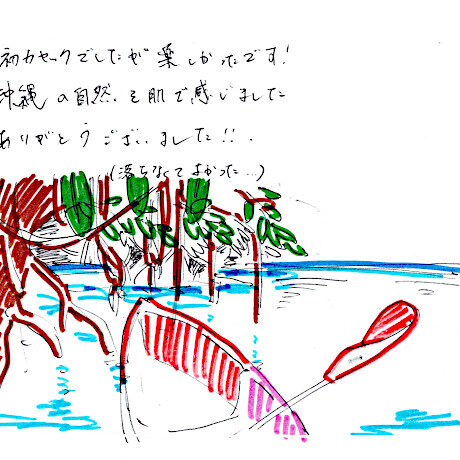 初カヤックでしたが楽しかったです!
沖縄の自然を肌で感じました
ありがとうございました!!.
(落ちなくてよかった...)